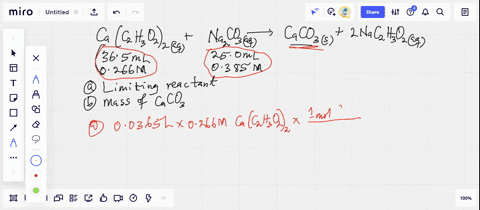 miro Untitled
Share
Ca(C2H3O2)2(aq) + Na2CO3(aq) → CaCO3(s) + 2NaC2H3O2(aq)
36.5mL 25.0mL
0.266M 0.385M
(a) Limiting reactant
(b) mass of CaCO3
(a) 0.0365L × 0.266M Ca(C2H3O2)2 × 1mol
100%